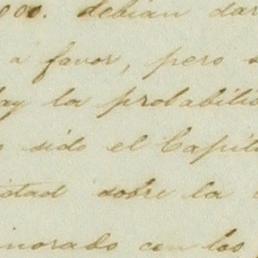 000. debian dar
a favor, pero s
hay la probabili
sido el Capit
sobre la
con los